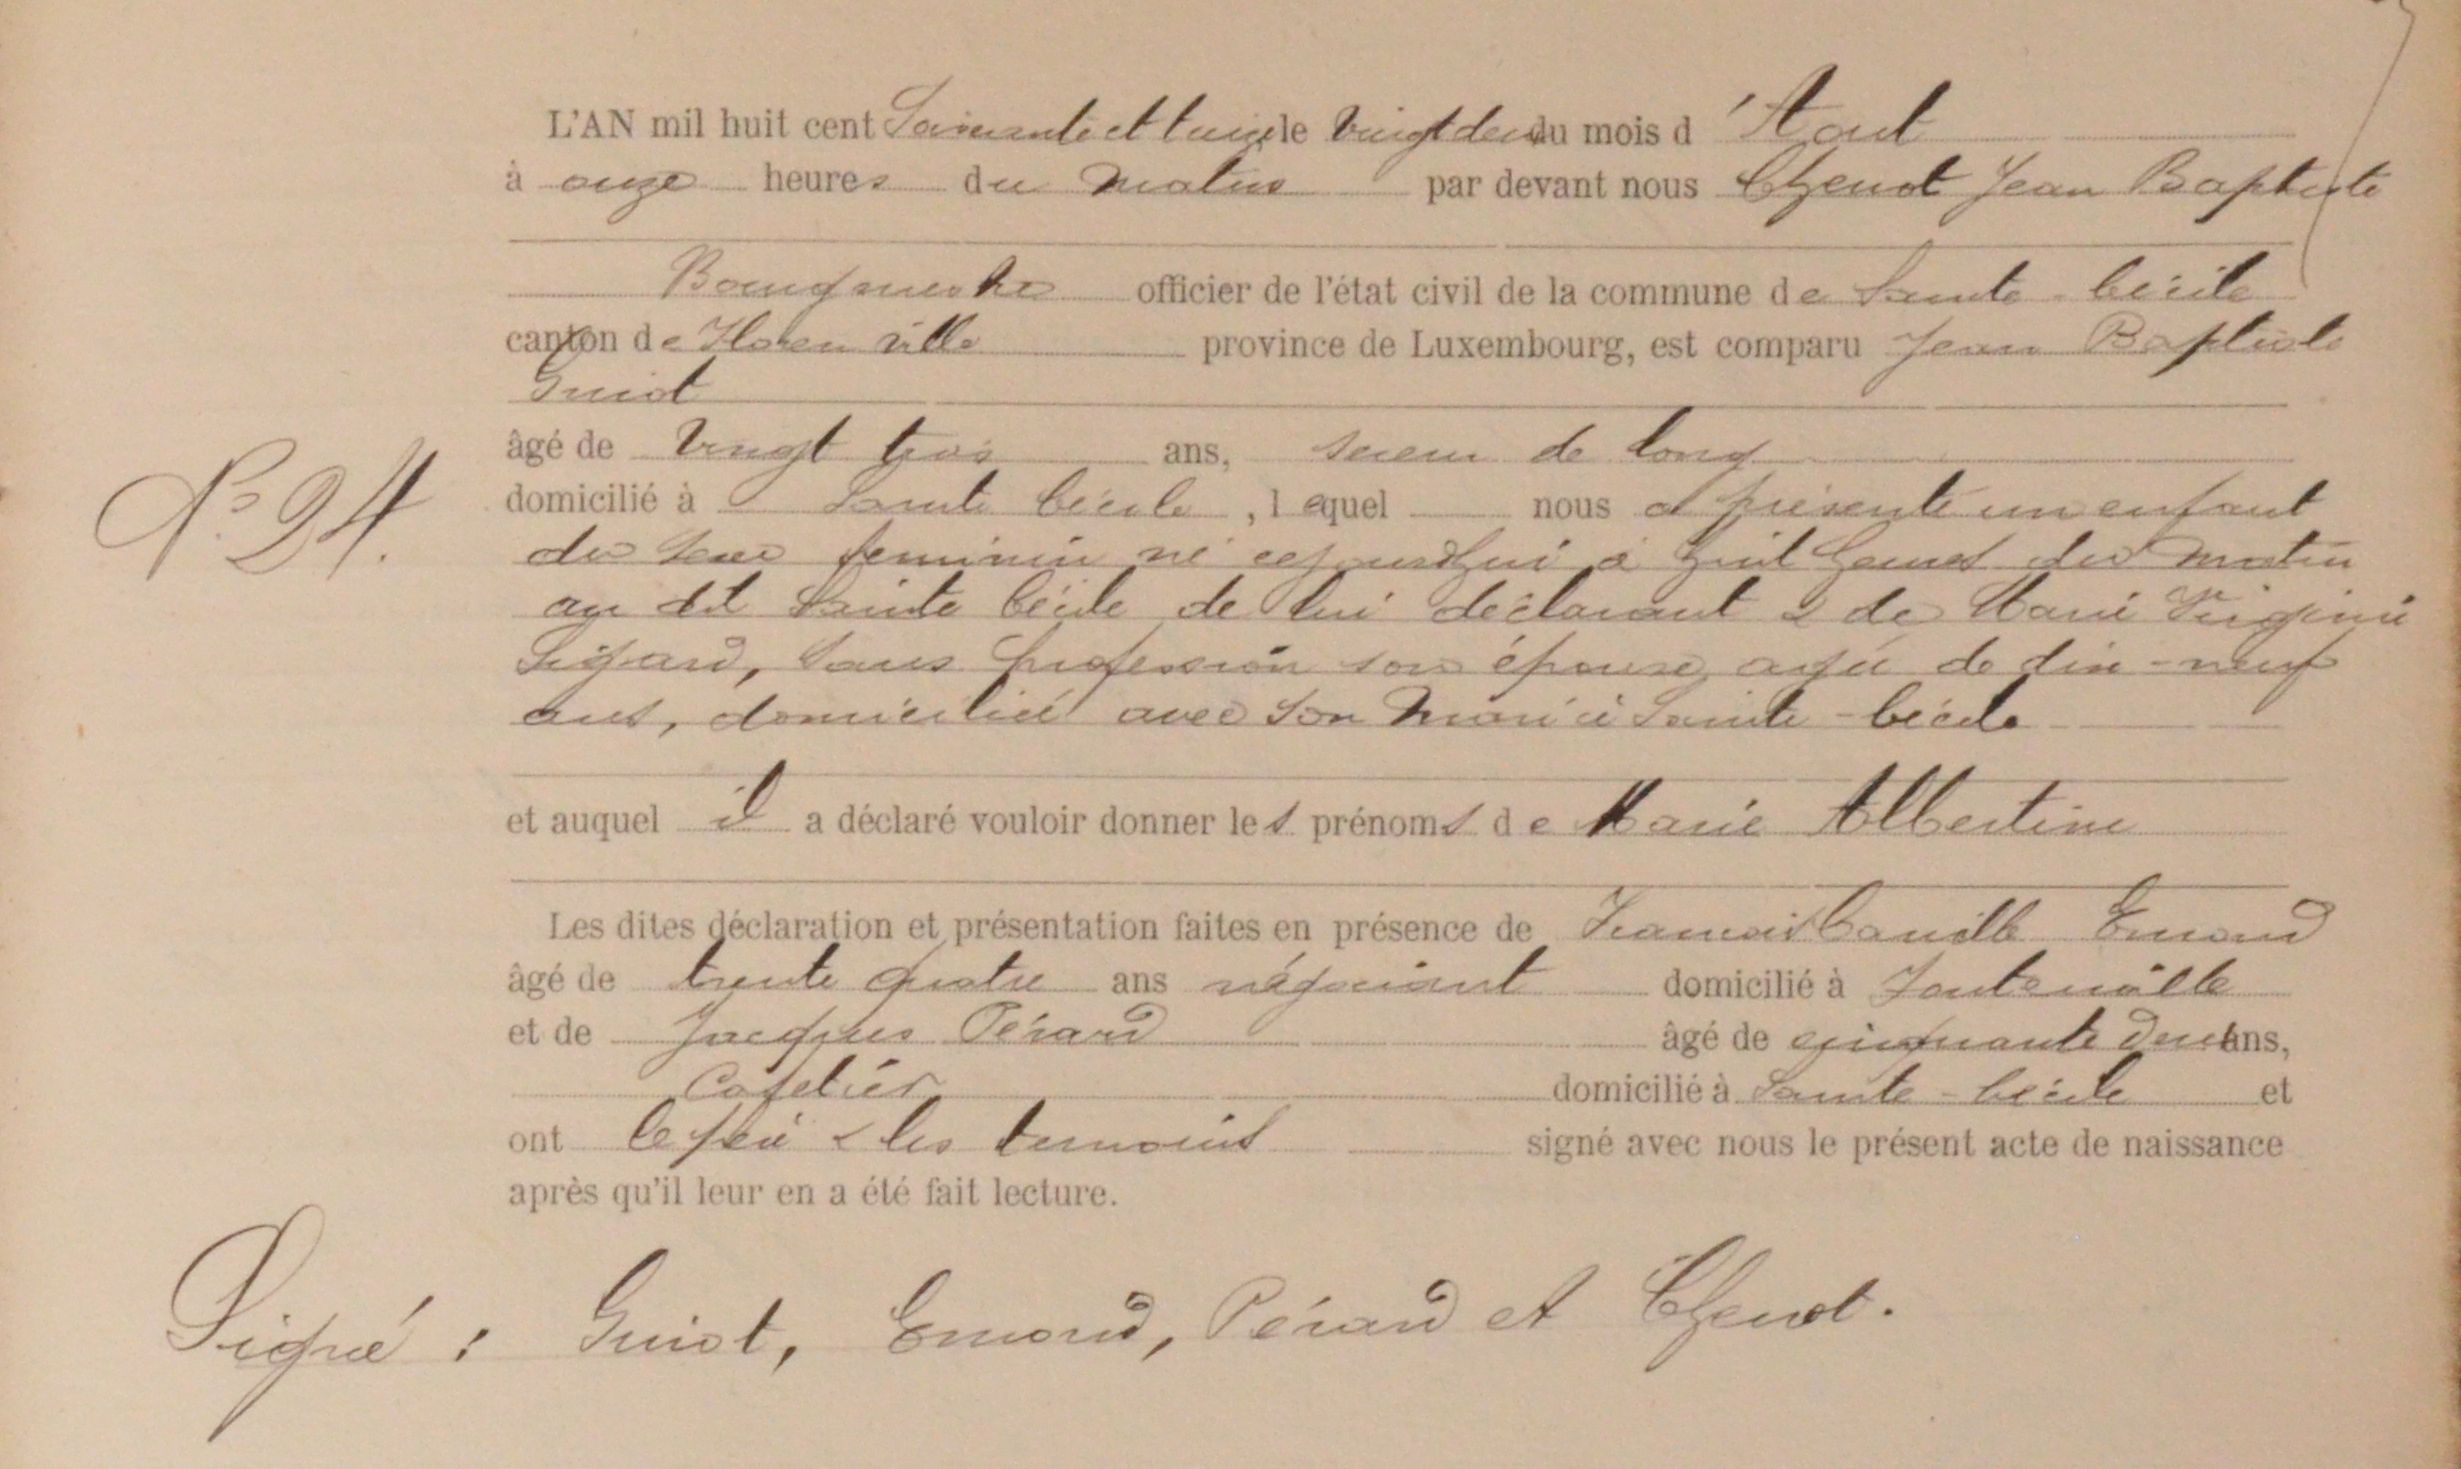 L'AN mil huit cent Soixante et treize le vingt deux du mois d'Aout
à onze heures du matin par devant nous Chenot Jean Baptiste
Bourgmestre officier de l'état civil de la commune de Sainte-Cécile
canton de Florenville province de Luxembourg, est comparu Jean Baptiste
Guiot
âgé de vingt trois ans, scieur de long
N° 24.
domicilié à Sainte Cécile, lequel nous a présenté un enfant
du sexe feminin né cejourd'hui à huit heures du matin
au dit Sainte Cécile de lui déclarant & de Marie Virginie
sans profession son épouse, agée de dix-neuf
ans, domiciliée avec son mari à Sainte-Cécile
et auquel il a déclaré vouloir donner les prénoms de Marie Albertine
Les dites déclaration et présentation faites en présence de François Camille Emond
âgé de trente quatre ans négociant domicilié à Fontenoille
et de Jacques Pérard âgé de cinquante deux ans,
Cafetier domicilié à Sainte-Cécile et
ont le père & les temoins signé avec nous le présent acte de naissance
après qu'il leur en a été fait lecture.
Signé : Guiot, Emond, Pérard et Chenot.